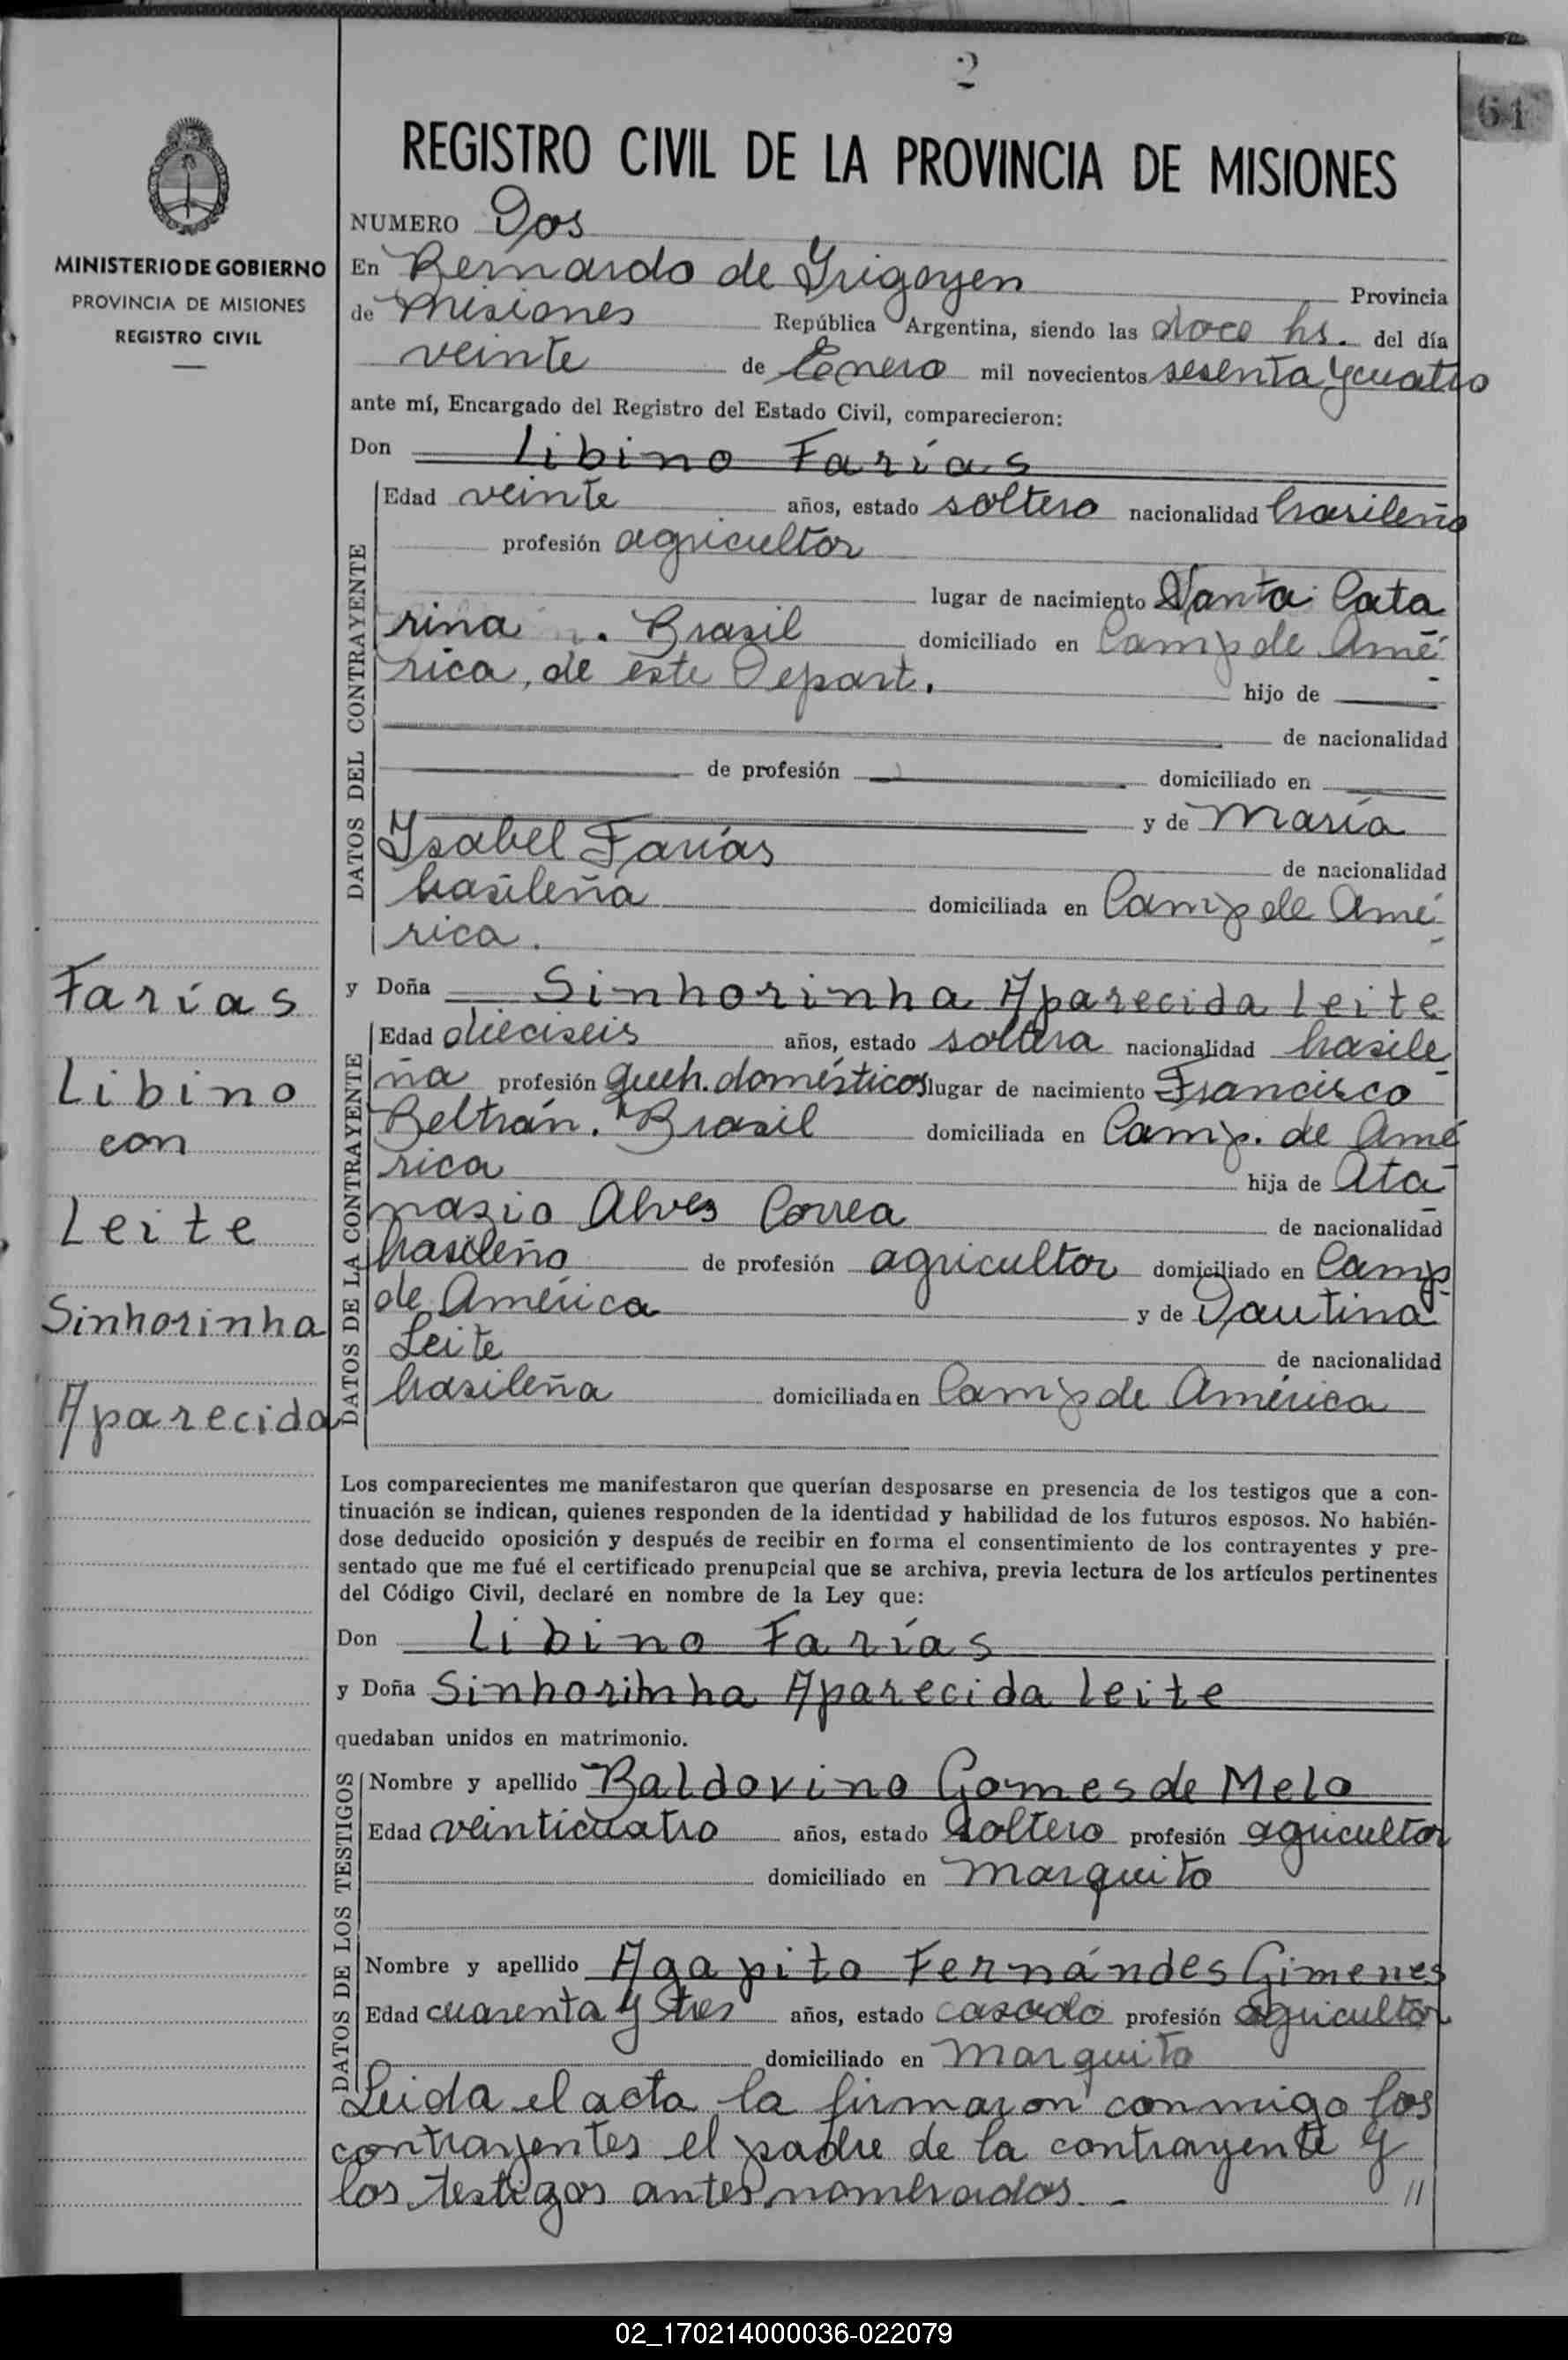 2
64
REGISTRO CIVIL DE LA PROVINCIA DE MISIONES
MINISTERIO DE GOBIERNO
PROVINCIA DE MISIONES
REGISTRO CIVIL
NUMERO Dos
En Bernardo de Yrigoyen Provincia
de Misiones República Argentina, siendo las doce hs. del día
veinte de Enero mil novecientos sesenta y cuatro
ante mí, Encargado del Registro del Estado Civil, comparecieron:
Don Libino Farías
DATOS DEL CONTRAYENTE
Edad veinte años, estado soltero nacionalidad brasileño
profesión agricultor
lugar de nacimiento Santa Cata
rina . Brasil domiciliado en Camp de Amé
rica, de este Depart. hijo de
de nacionalidad
de profesión domiciliado en
y de María
Ysabel Farías de nacionalidad
brasileña domiciliada en Camp de Amé
rica.
Farías
Libino
con
Leite
Sinhorinha
Aparecida
y Doña Sinhorinha Aparecida Leite
DATOS DE LA CONTRAYENTE
Edad dieciseis años, estado soltera nacionalidad brasile
ña profesión queh. domésticos lugar de nacimiento Francisco
Beltrán. Brasil domiciliada en Camp. de Amé
rica hija de Ata
nasio Alves Correa de nacionalidad
brasileño de profesión agricultor domiciliado en Camp
de América y de Dautina
Leite de nacionalidad
brasileña domiciliada en Camp de América
Los comparecientes me manifestaron que querían desposarse en presencia de los testigos que a con-
tinuación se indican, quienes responden de la identidad y habilidad de los futuros esposos. No habién-
dose deducido oposición y después de recibir en forma el consentimiento de los contrayentes y pre-
sentado que me fué el certificado prenupcial que se archiva, previa lectura de los artículos pertinentes
del Código Civil, declaré en nombre de la Ley que:
Don Libino Farías
y Doña Sinhorinha Aparecida Leite
quedaban unidos en matrimonio.
DATOS DE LOS TESTIGOS
Nombre y apellido Baldovino Gomes de Melo
Edad veinticuatro años, estado soltero profesión agricultor
domiciliado en Marquito
Nombre y apellido Agapito Fernándes Gimenes
Edad cuarenta y tres años, estado casado profesión agricultor
domiciliado en Marquito
Leida el acta la firmaron conmigo los
contrayentes el padre de la contrayente y
los testigos antes nombrados. - //
02_170214000036-022079